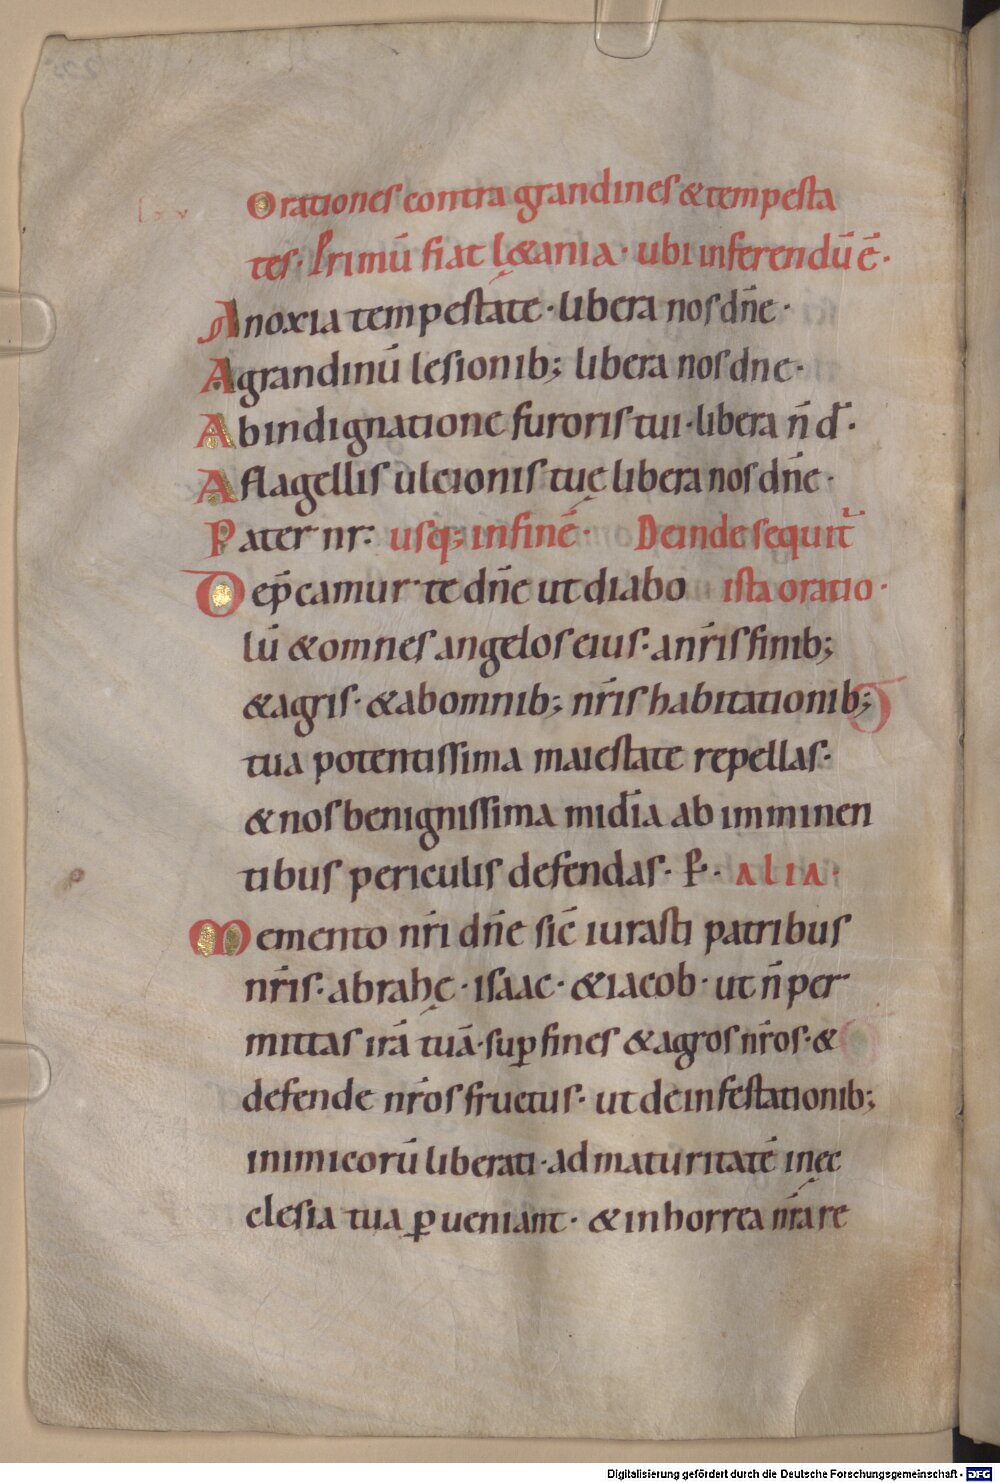 Orationes contra grandines & tempesta
tes· Primū fiat l&ania· ubi inferendū ē·
A noxia tempestate· libera nos dn̄e·
A grandinū lesionib; libera nos dne·
Ab indignatione furoris tui· libera n̄ d̄·
A flagellis ulcionis tuę libera nos dn̄e·
Pater nr̄: usq; in finē· Deinde sequit̄
Dep̄camur te dn̄e ut diabo ista oratio·
lū & omnes angelos eius· a nr̄is finib;
& agris· & ab omnib; nr̄is habitationib;
tua potentissima maiestate repellas·
& nos benignissima mid̄ia ab imminen
tibus periculis defendas· P· ALIA·
Memento nr̄i dn̄e sic̄ iurasti patribus
nr̄is· abrahę· isaac· & iacob· ut n̄ per
mittas irā tuā· sup̱ fines & agros nr̄os· &
defende nr̄os fructus· ut de infestationib;
inimicorū liberati· ad maturitatē in ęc
clesia tua p̱ueniant· & in horrea nr̄a re
Digitalisierung gefördert durch die Deutsche Forschungsgemeinschaft - DFG